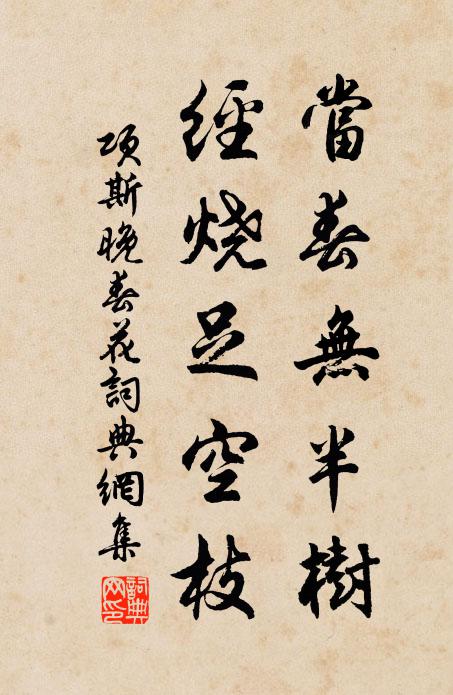 當春無半樹
經燒足空枝
項斯晚春花詞典網集
詞典网印